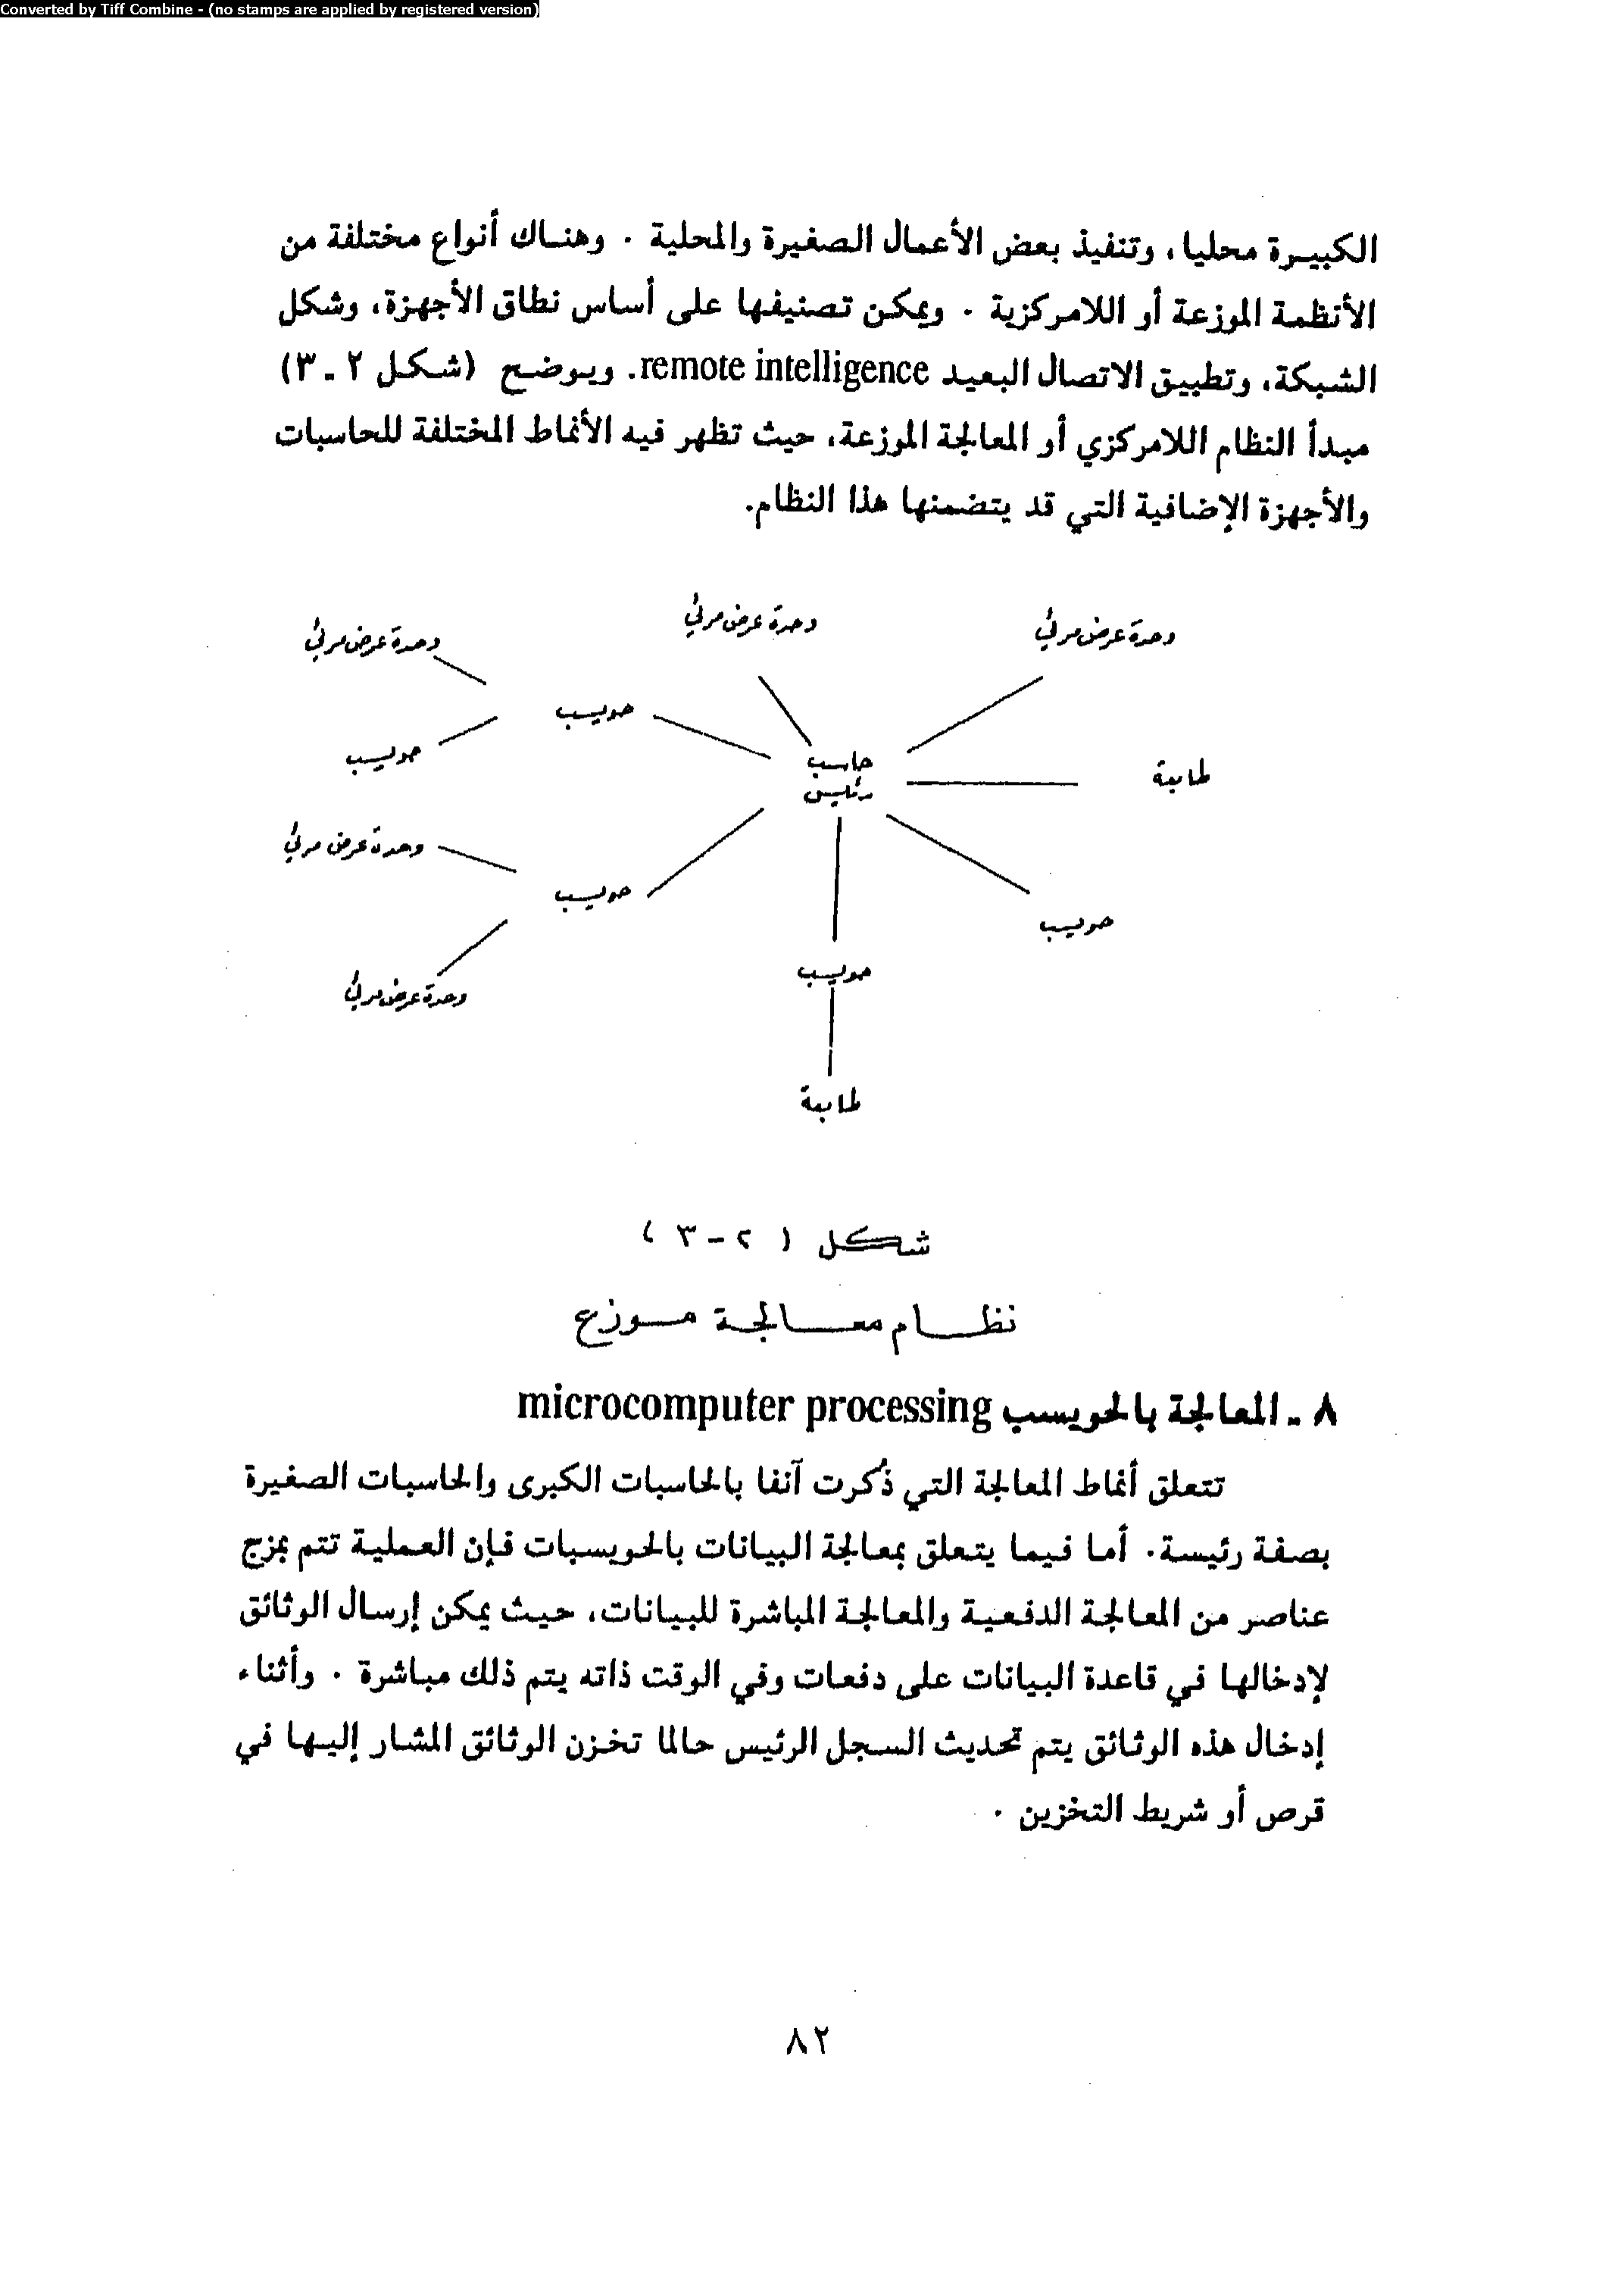 Converted by Tiff Combine - (no stamps are applied by registered version)
الكبيرة محليا، وتنفيذ بعض الأعمال الصغيرة والمحلية . وهناك أنواع مختلفة من
الأنظمة الموزعة أو اللامركزية . ويمكن تصنيفها على أساس نطاق الأجهزة، وشكل
الشبكة، وتطبيق الاتصال البعيد remote intelligence. ويوضح (شكل ٢ ـ ٣)
مبدأ النظام اللامركزي أو المعالجة الموزعة، حيث تظهر فيه الأنماط المختلفة للحاسبات
والأجهزة الإضافية التي قد يتضمنها هذا النظام.
وحدة عرض مرئي
وحدة عرض مرئي
وحدة عرض مرئي
حويسب
حويسب
حاسب
رئيس
طابعة
وحدة عرض مرئي
حويسب
حويسب
حويسب
وحدة عرض مرئي
طابعة
شكل ( ٢ - ٣ )
نظام معالجة موزع
٨ ـ المعالجة بالحويسب microcomputer processing
تتعلق أنماط المعالجة التي ذُكرت آنفا بالحاسبات الكبرى والحاسبات الصغيرة
بصفة رئيسة. أما فيما يتعلق بمعالجة البيانات بالحويسبات فإن العملية تتم بمزج
عناصر من المعالجة الدفعية والمعالجة المباشرة للبيانات، حيث يمكن إرسال الوثائق
لإدخالها في قاعدة البيانات على دفعات وفي الوقت ذاته يتم ذلك مباشرة . وأثناء
إدخال هذه الوثائق يتم تحديث السجل الرئيس حالما تخزن الوثائق المشار إليها في
قرص أو شريط التخزين .
٨٢